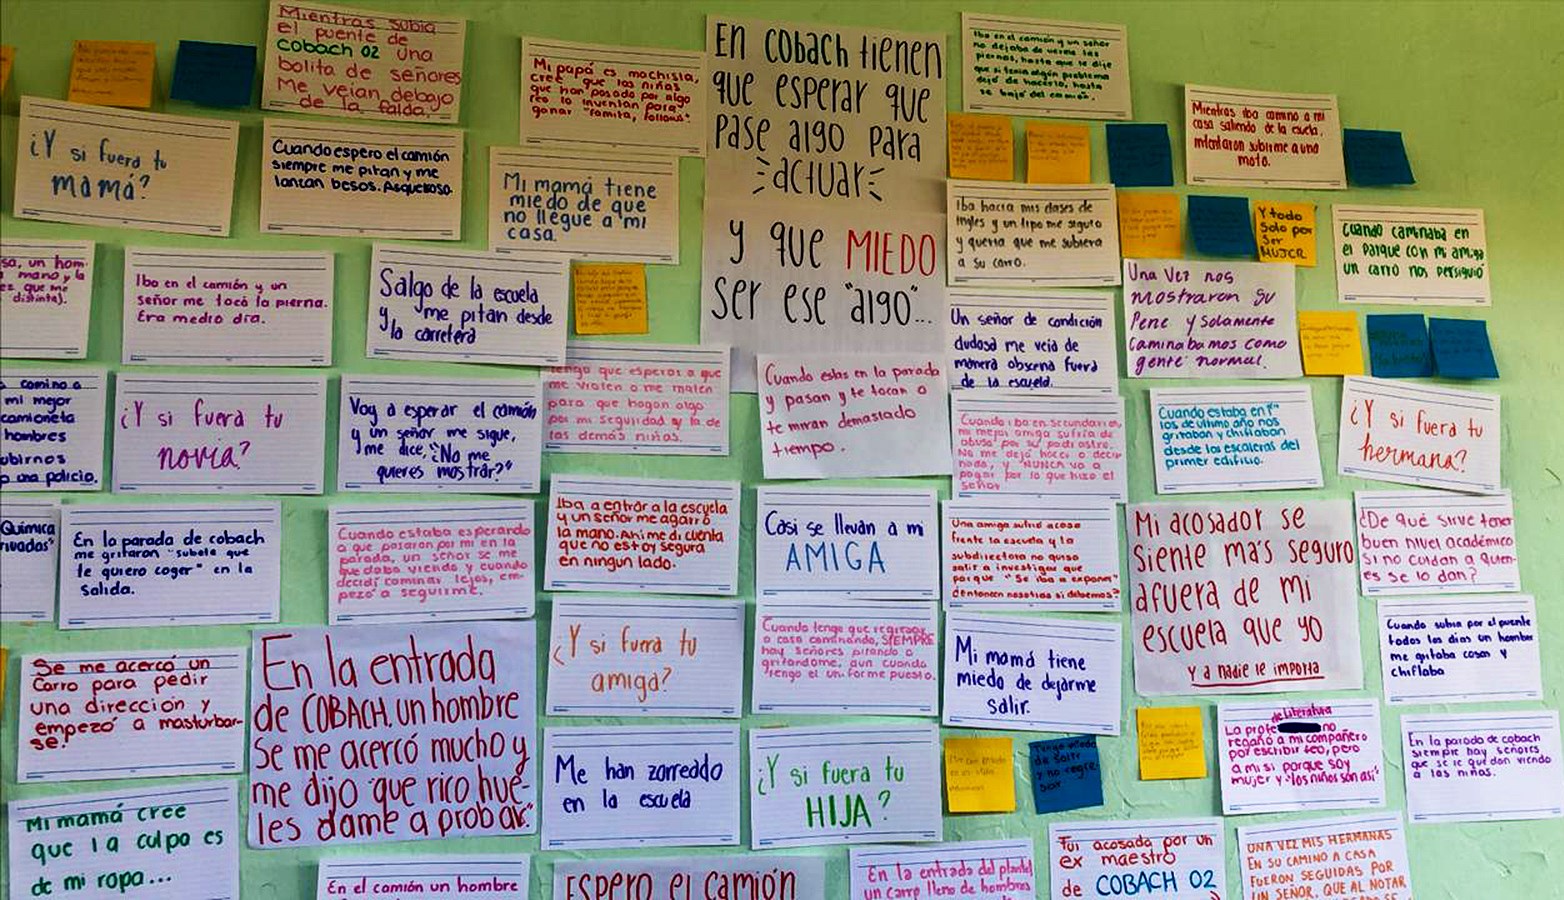 Mientras subia
el puente de
cobach 02 una
bolita de señores
Me veian debajo
de la falda.
Mi papá es machista,
cree que las niñas
que han pasado por algo
feo lo inventan para
ganar "famita, follows".
EN COBACH tIENEN
quE EspERAR quE
pASE AlGO pARA
actuar
Iba en el camión y un señor
no dejaba de verme las
piernas, hasta que le dije
que si tenia algún problema
dejó de hacerlo, hasta
se bajó del camión.
Mientras iba camino a mi
casa saliendo de la escuela,
intentaron subirme a una
moto.
¿Y si fuera tu
mamá?
Cuando espero el camión
siempre me pitan y me
lanzan besos. Asqueroso.
Mi mamá tiene
miedo de que
no llegue a mi
casa.
y quE MIEDO
sER EsE "algo"...
iba hacia mis clases de
ingles y un tipo me siguio
y queria que me subiera
a su carro.
Y todo
Solo por
Ser
MUJER
Cuando caminaba en
el parque con mi amiga
un carro nos persiguió
sa, un hom-
mano y la
ez que me
distinta).
Iba en el camión y un
señor me tocó la pierna.
Era medio dia.
Salgo de la escuela
y me pitan desde
la carretera
Un señor de condición
dudosa me veia de
manera obscena fuera
de la escuela.
Una Vez nos
mostraron su
Pene y solamente
Caminabamos como
gente normal.
camino a
mi mejor
camioneta
hombres
ubirnos
una policia.
¿Y si fuera tu
novia?
Voy a esperar el camión
y un señor me sigue,
y me dice, "¿No me
quieres mostrar?"
Tengo que esperar a que
me violen o me maten
para que hagan algo
por mi seguridad y la de
las demás niñas.
Cuando estas en la parada
y pasan y te tocan o
te miran demasiado
tiempo.
Cuando iba en secundaria
mi mejor amiga sufria de
abuso por su padrastro.
No me dejó hacer o decir
nada, y "NUNCA va a
pagar por lo que hizo el
señor.
Cuando estaba en 1°
los de último año nos
gritaban y chiflaban
desde las escaleras del
primer edificio.
¿Y si fuera tu
hermana?
Química
rivadas"
En la parada de cobach
me gritaron "subele que
te quiero coger" en la
salida.
Cuando estaba esperando
a que pasaran por mi en la
parada, un señor se me
quedaba viendo y cuando
decidí caminar lejos, em-
pezó a seguirme.
Iba a entrar a la escuela
y un señor me agarró
la mano. Ahi me di cuenta
que no estoy segura
en ningun lado.
Casi se llevan a mi
AMIGA
Una amiga sufrió acoso
frente la escuela y la
subdirectora no quiso
salir a investigar que
porque "Se iba a exponer"
¿entonces nosotras si debemos?
Mi acosador se
siente más seguro
afuera de mi
escuela que yo
Y a nadie le importa
¿De qué sirve tener
buen nivel académico
si no cuidan a quien-
es se lo dan?
Se me acercó un
Carro para pedir
una dirección y
empezó a masturbar-
se.
En la entrada
de COBACH, un hombre
Se me acercó mucho y
me dijo "que rico hue-
les dame a probar."
¿Y si fuera tu
amiga?
Cuando tengo que regresar
a casa caminando, SIEMPRE
hay señores pitando o
gritandome, aun cuando
tengo el uniforme puesto.
Mi mamá tiene
miedo de dejarme
salir.
Cuando subia por el puente
todos los dias un hombre
me gritaba cosas y
chiflaba
Mi mamá cree
que la culpa es
de mi ropa...
Me han zorreado
en la escuela
¿Y si fuera tu
HIJA?
Tengo miedo
de salir
y no regre-
sar
de Literatura
La profe no
regañó a mi compañero
por escribir feo, pero
a mi si porque soy
mujer y "los niños son asi"
En la parada de cobach
siempre hay señores
que se le quedan viendo
a las niñas.
En el camión un hombre
ESPERO El CAMIÓN
En la entrada del plantel
un carro lleno de hombres
Fui acosada por un
ex maestro
de COBACH 02
UNA VEZ MIS HERMANAS
EN SU CAMINO A CASA
FUERON SEGUIDAS POR
UN SEÑOR, QUE AL NOTAR